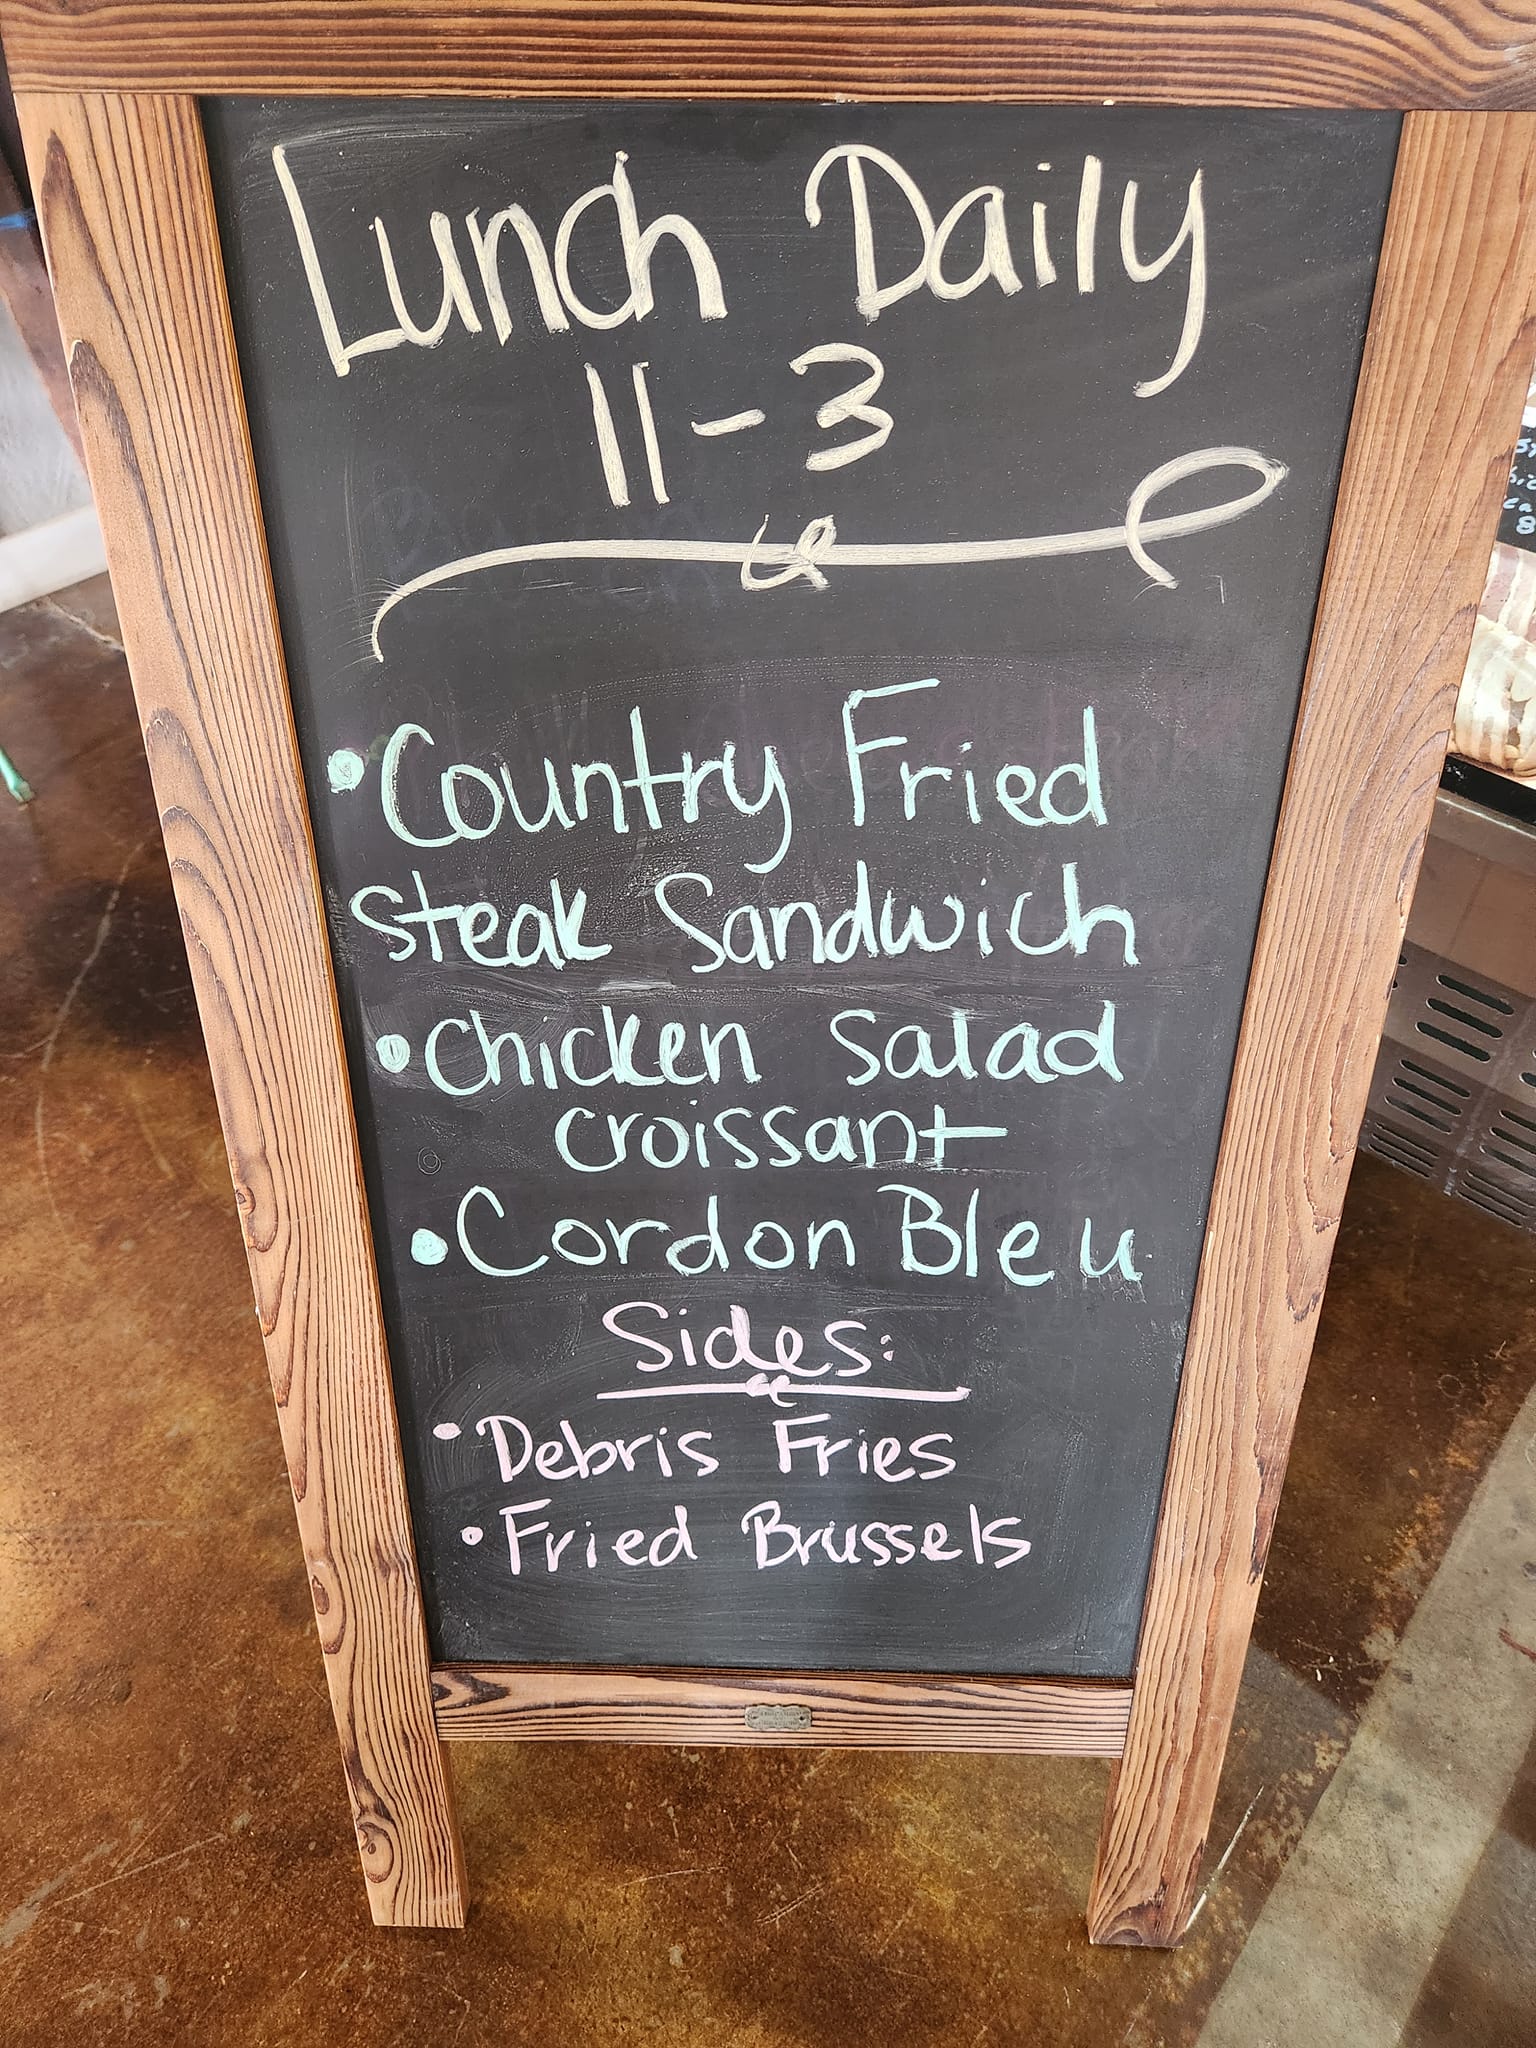 Lunch Daily
11-3
• Country Fried
Steak Sandwich
• Chicken Salad
croissant
• Cordon Bleu
Sides:
• Debris Fries
• Fried Brussels